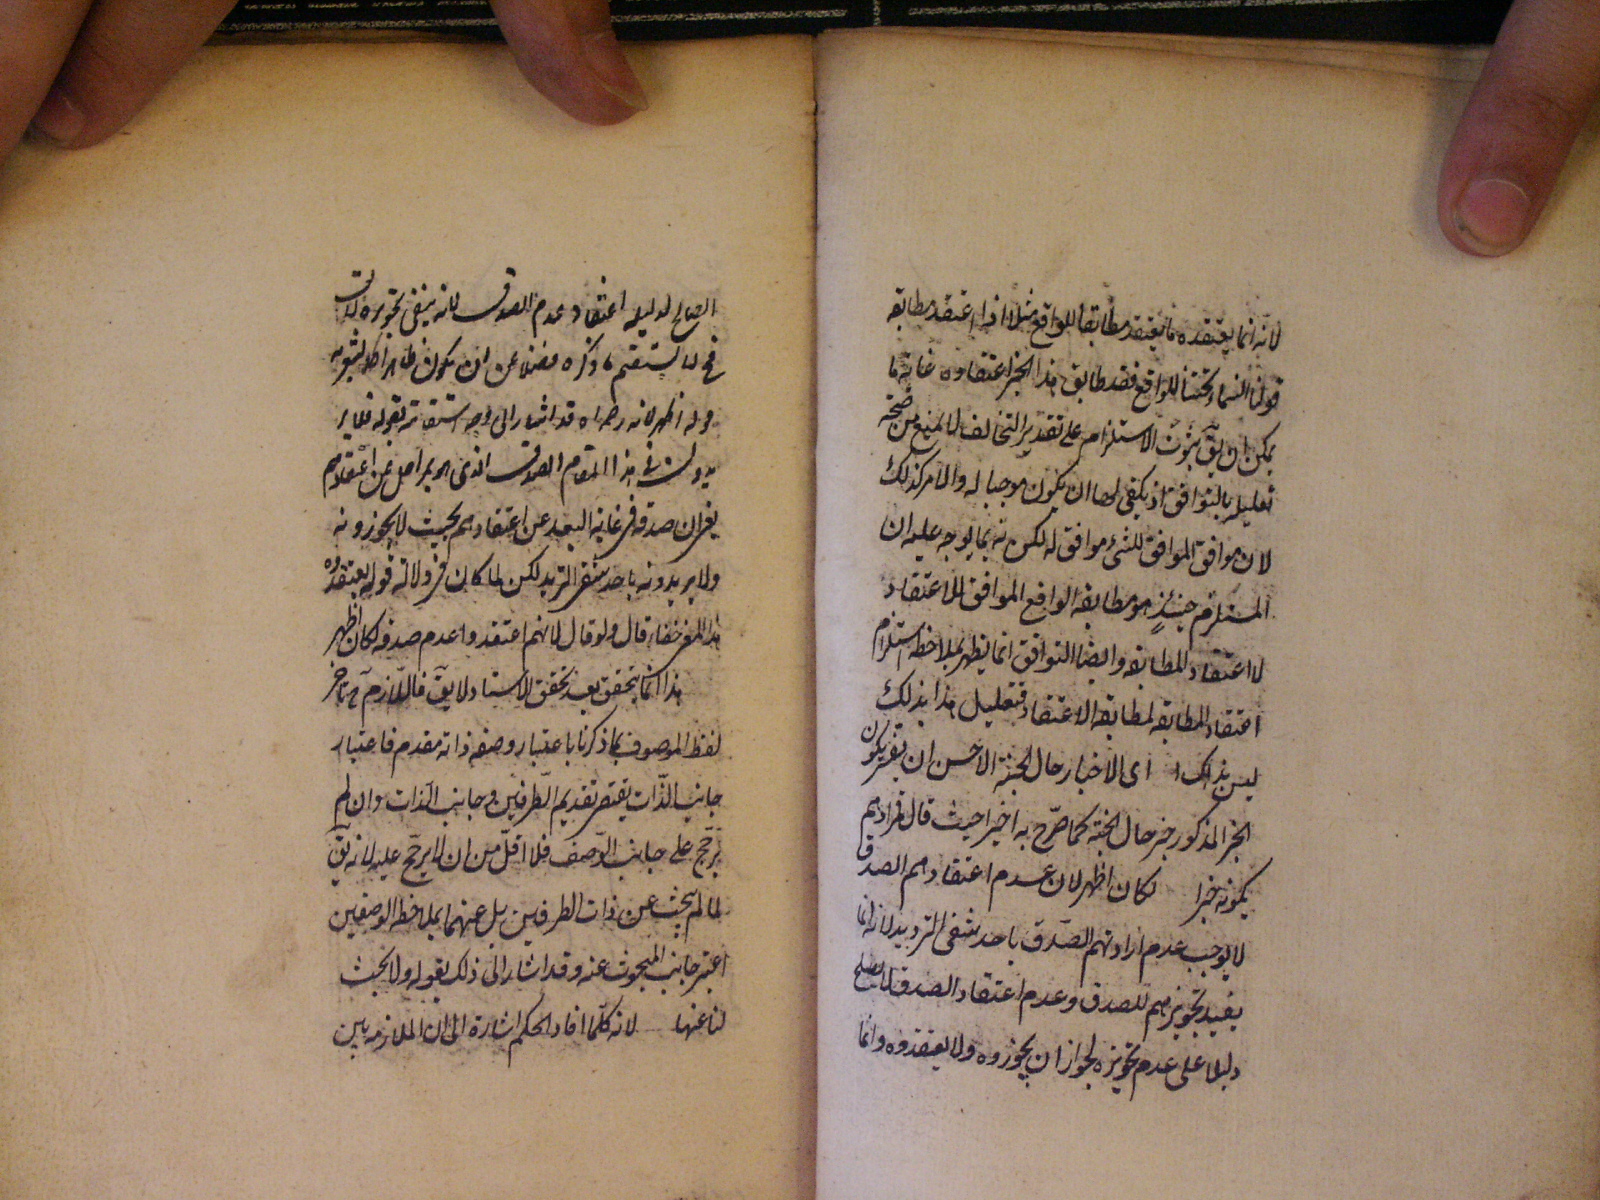 لانه انما يعتقده ما يعتقد مطابقا للواقع مثلا اذا اعتقد مطابقه
قولنا السماء تحتنا للواقع فقد طابق هذا الخبر اعتقاده غاية ما
يمكن ان يقّ ثبوت الاستلزام على تقدير التخالف لا يمنع من صحة
تعليله بالتوافق اذ يكفى لها ان يكون موجبا له والامر كذلك
لان موافق الموافق للشئ موافق له لكن يوجه عليه ان
المستلزم حينئذ هو مطابقة الواقع الموافق للاعتقاد
لا اعتقاد المطابقه وايضا التوافق انما يظهر بملاحظة استلزام
اعتقاد المطابقه لمطابقه الاعتقاد فتعليل هذا بذلك
ليس بذلك اى الاخبار حال الجنة الاحسن ان يفسر بكون
الخبر المذكور خبر حال الجنة كما صرّح به اخيرا حيث قال فمرادهم
بكونه خبرا لكان اظهر لان عدم اعتقادهم الصدق
لا يوجب عدم ارادتهم الصدق باحد شقى الترديد لانه انما
يفيد تجويزهم للصدق وعدم اعتقاد الصدق لا يصلح
دليلا على عدم تجويزه لجواز ان يجوزوه ولا يعتقدوه وانما
الصالح لدليله اعتقاد عدم الصدق لانه ينفى تجويزه
فح لا يستقيم ما ذكره فضلا عن ان يكون ظاهرا كما يشعر به
قوله اظهر لانه رحمه الله قد اشار الى وجه استقامته بقوله فلا ير
يدون فى هذا المقام الصدق الذى هو بمراحل عن اعتقادهم
يعنى ان صدقه فى غاية البعد عن اعتقادهم بحيث لا يجوزونه
ولا يريدونه باحد شقى الترديد لكن لما كان فى دلالة قوله يعتقدوه
هذا المعنى خفاء قال ولو قال لانهم اعتقدوا عدم صدقه لكان اظهر
هذا انما يتحقق بعد تحقق الاسناد لا يقّ فاللازم ح تاخر
لفظ الموصوف بما ذكرنا باعتبار وصفه ذاته مقدم فاعتبار
جانب الذّات يقتضى تقديم الطرفين وجانب الذات وان لم
يرجّح على جانب الوصف فلا اقلّ من ان لا يرجّح عليه لانه يقّ
لما لم يبحث عن ذات الطرفين بل عنهما بملاحظة الوصفين
اعتبر جانب المبحوث عنه وقد اشار الى ذلك بقوله ولا بحث
لنا عنها لانه كلّما افاد الحكم اشارة الى ان الملازمه بين